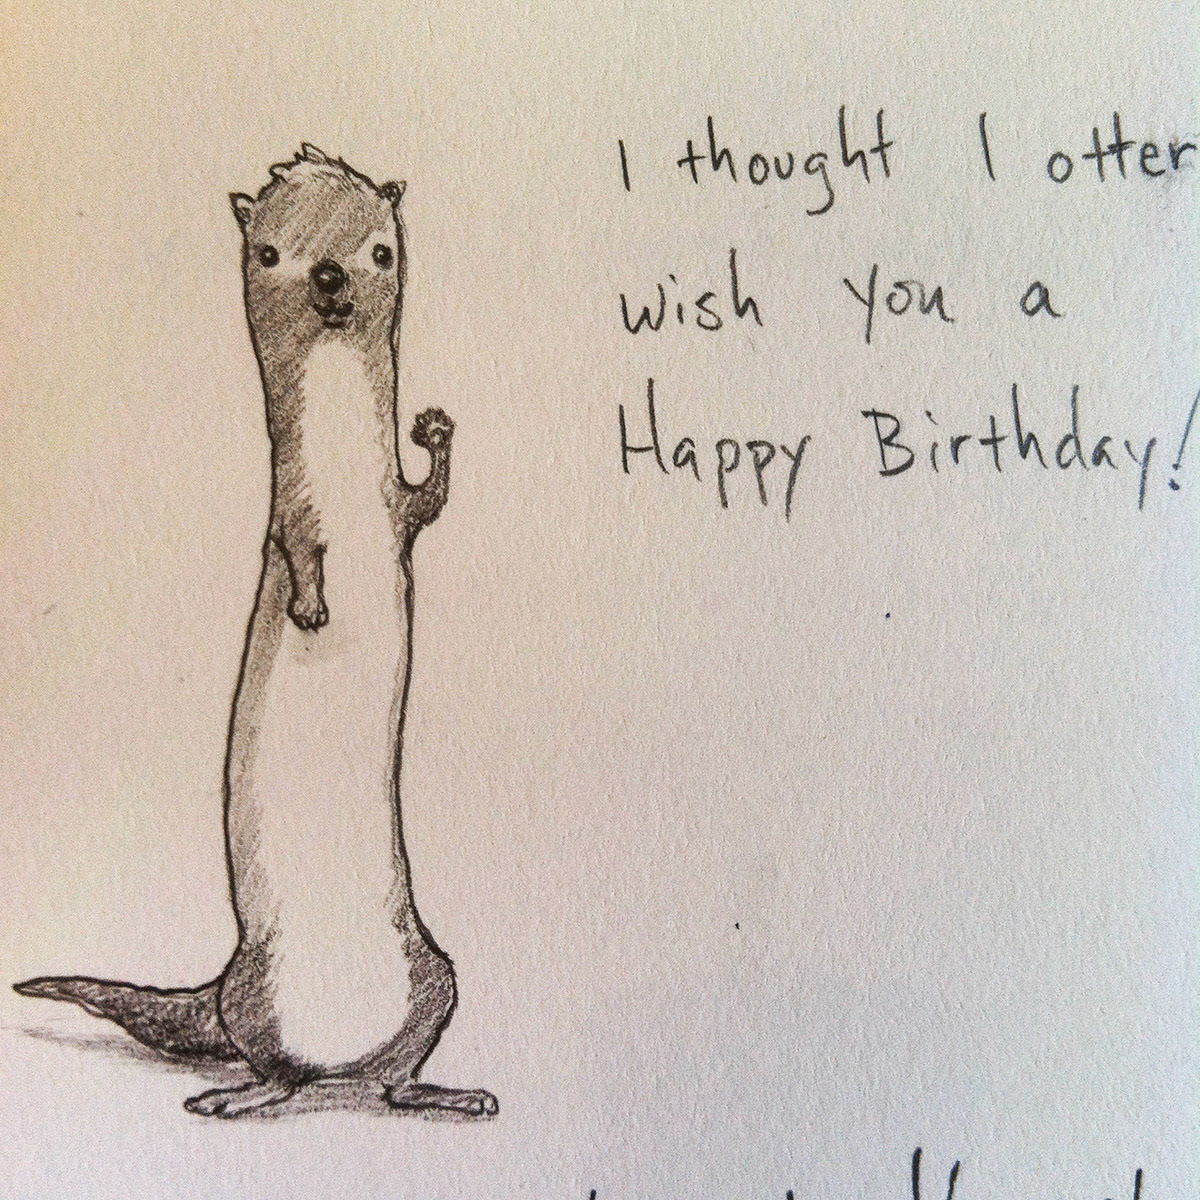 I thought I otter
wish you a
Happy Birthday!